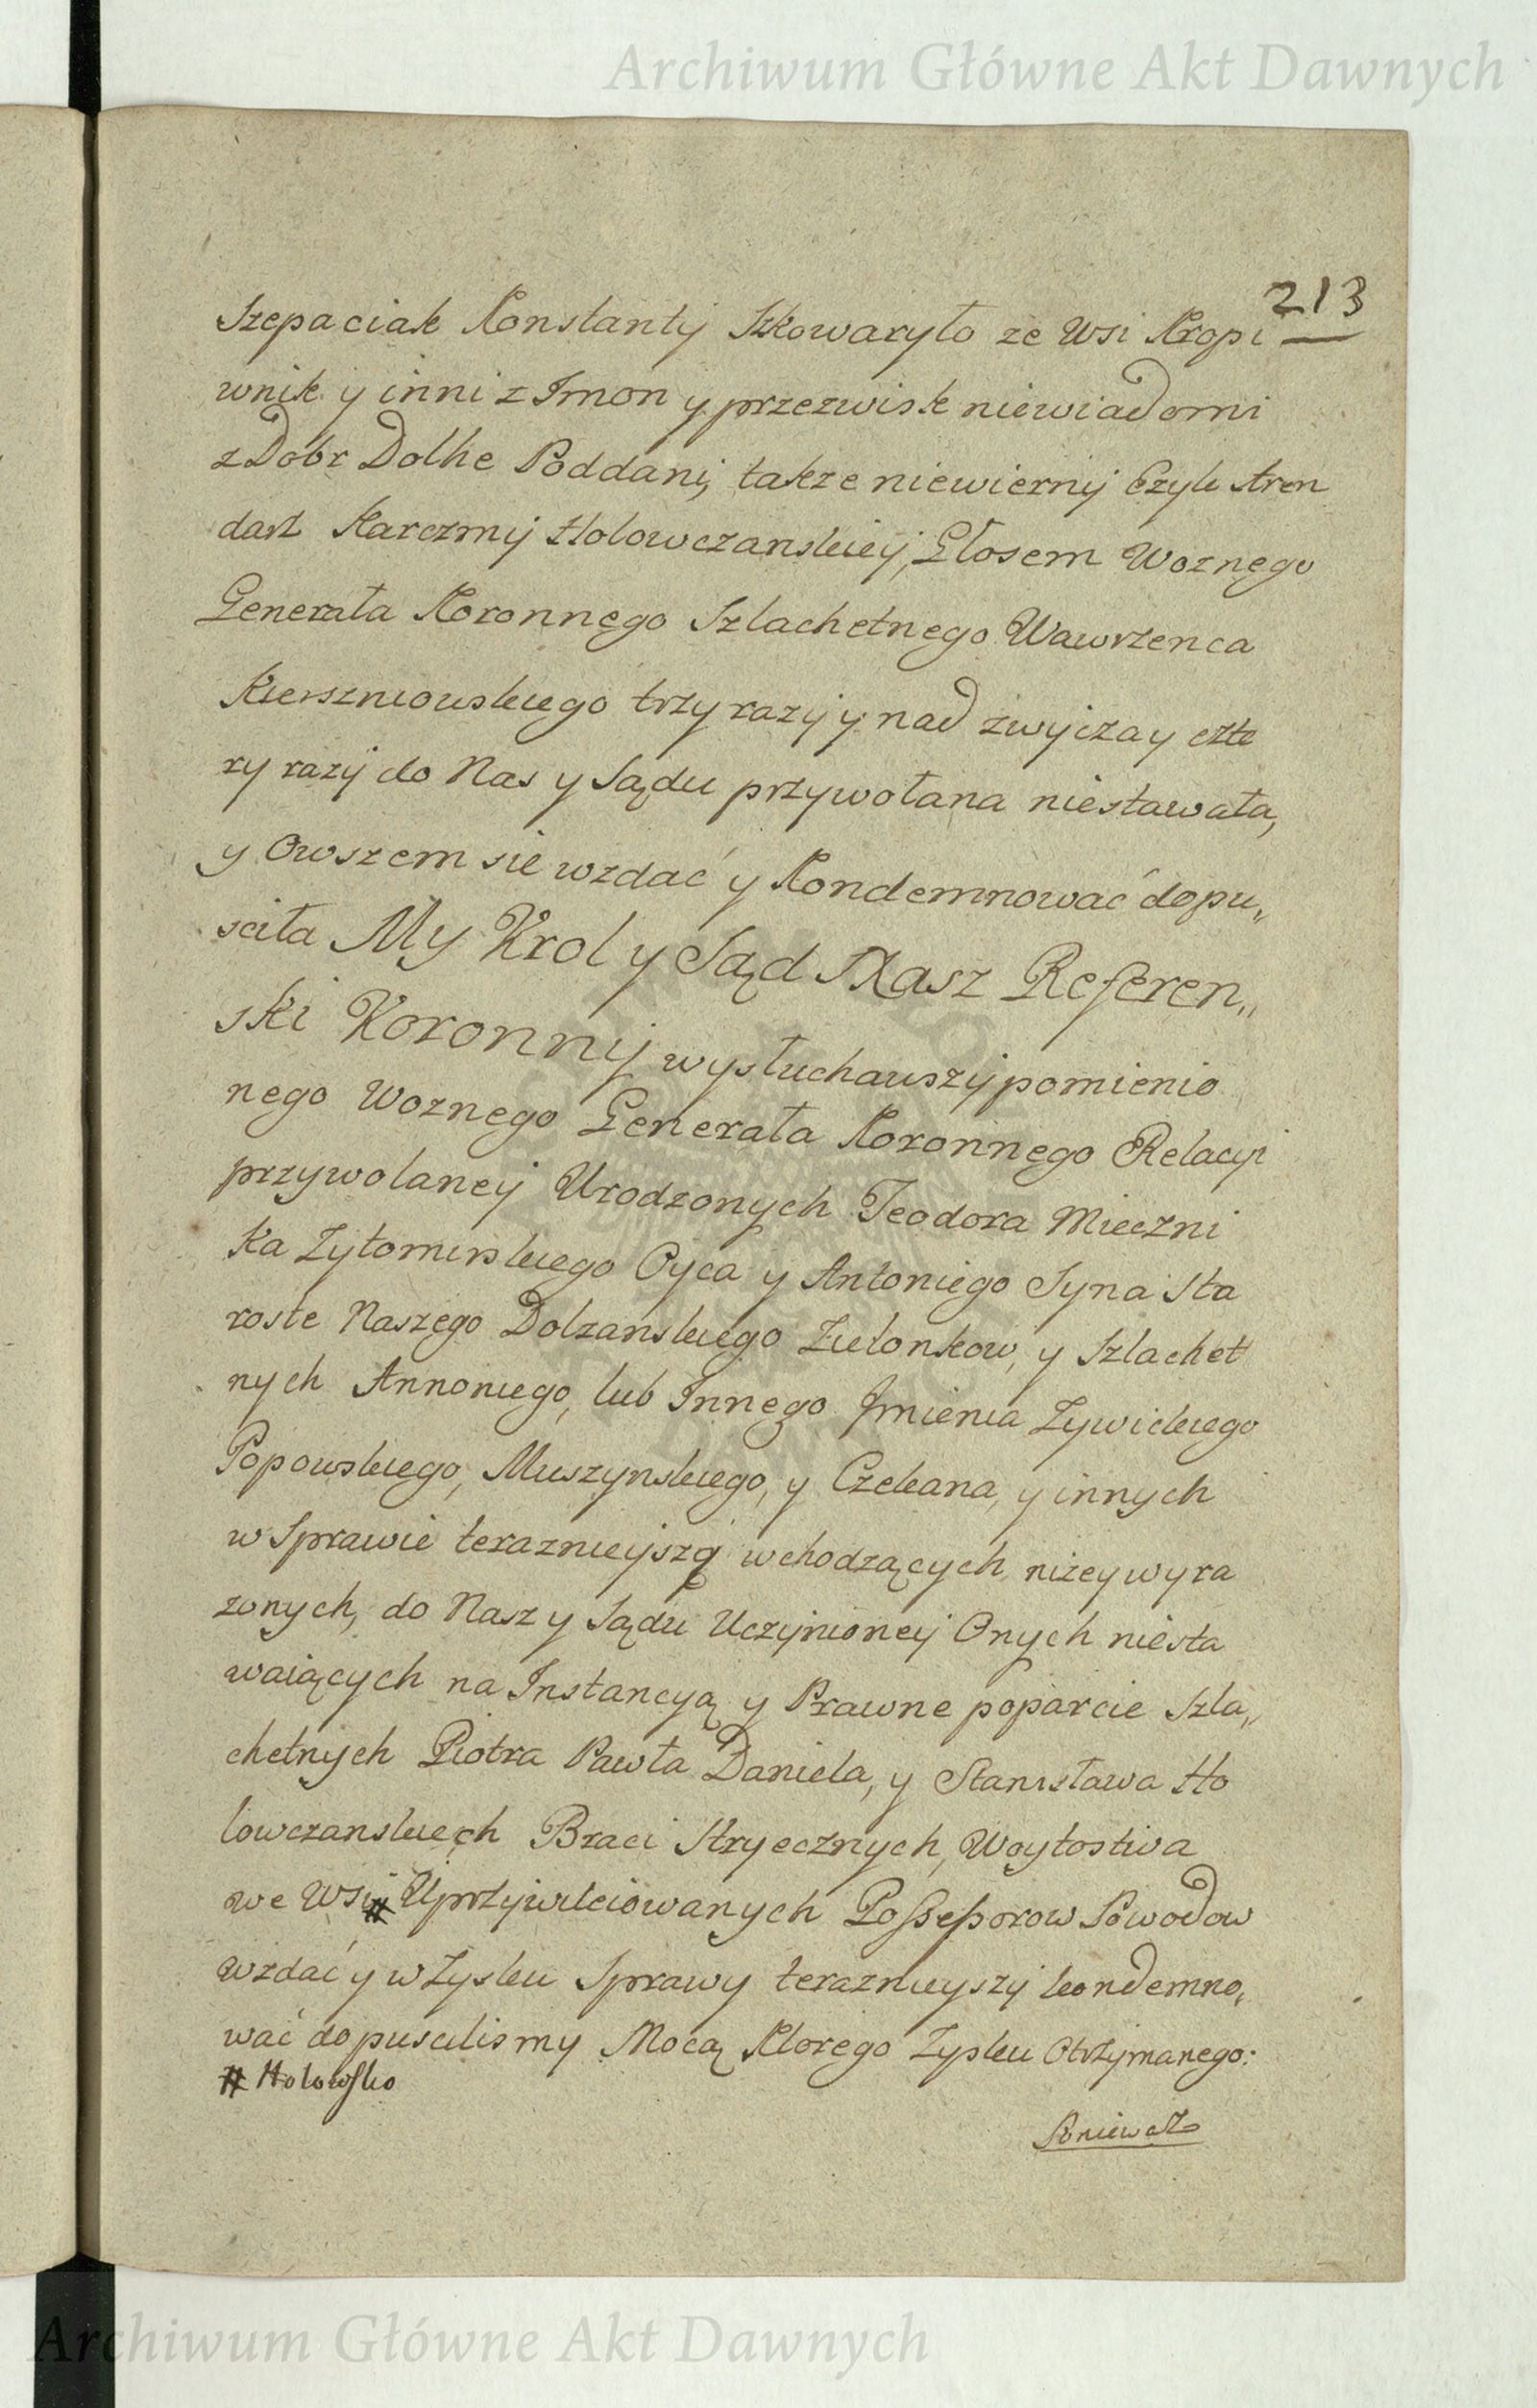 Archiwum Główne Akt Dawnych
213
Szepaciak Konstantij Szkowaryło ze Wsi Kropi
wnik y inni z Imon y przezwisk niewiadomi
z Dobr Dolhe Poddani, takze niewiernij Czyli Aren
darz Karczmij Holowczanskieij, Głosem Woznego
Generała Koronnego Szlachetnego Wawrzenca
Kierszniowskiego trzy razij y nad zwijczay czte
ry razij do Nas y Sądu przywołana niestawała,
y Owszem sie wzdać y Kondemnować dopu„
sciła My Krol y Sąd Nasz Referen„
ski Koronnij wysłuchawszij pomienio
nego Woznego Generała Koronnego Relacyi
przywolaneij Urodzonych Teodora Mieczni
ka Zytomirskiego Oyca y Antoniego Syna Sta
roste Naszego Dolzanskiego Zielonkow, y Szlachet
nych Annoniego, lub Innego Imienia Zywickiego
Popowskiego, Muszynskiego, y Czekana, y innych
w Sprawie terazniejszą wchodzących nizey wyra
zonych, do Nasz y Sądu Uczijnioneij Onych niesta
waiących na Instancyą y Prawne poparcie Szla„
chetnych Piotra Pawła Daniela, y Stanisława Ho
lowczanskiech Braci Stryecznych, Woytostwa
we Wsi # Uprzijwileiowanych Possessorow Powodow
wzdać y w Zysku Sprawy teraznieyszij kondemno„
wać dopuscilismy Mocą Ktorego Zysku Otrzijmanego:
# Holowsko
Poniewasz
Archiwum Główne Akt Dawnych